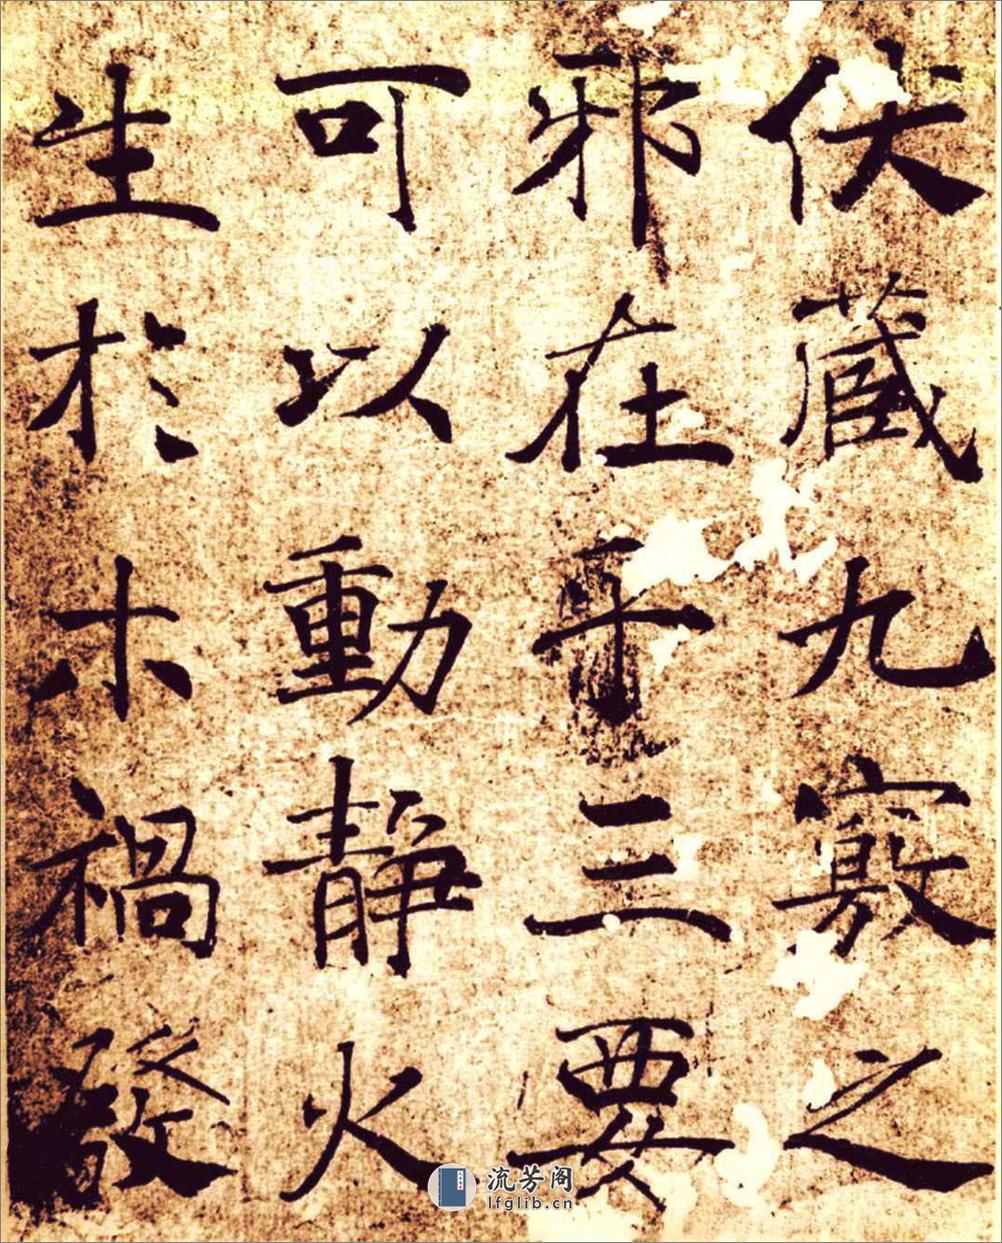 伏藏九竅之
邪在乎三要
可以動静火
生於木禍發
流芳阁
lfglib.cn